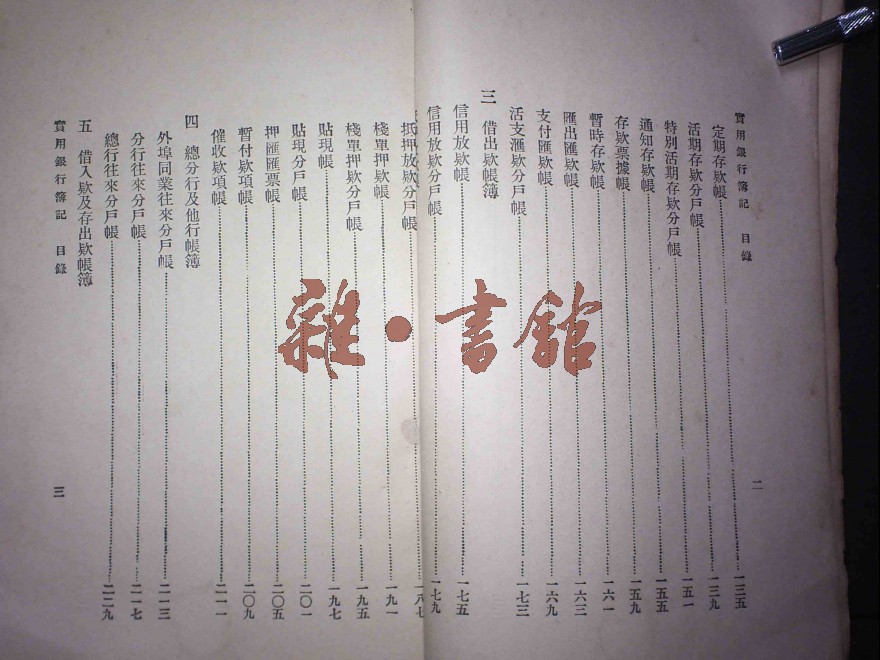 實用銀行簿記 目錄
二
定期存款帳 一三五
活期存款分戶帳 一三九
特別活期存款分戶帳 一五一
通知存款帳 一五五
存款票據帳 一五九
暫時存款帳 一六一
匯出匯款帳 一六三
支付匯款帳 一六九
活支滙款分戶帳 一七三
三 借出款帳簿
信用放款帳 一七五
信用放款分戶帳 一七九
抵押放款分戶帳 一八七
棧單押款帳 一九一
棧單押款分戶帳 一九五
貼現帳 一九七
貼現分戶帳 二〇一
押匯匯票帳 二〇五
暫付款項帳 二〇九
催收款項帳 二一一
四 總分行及他行帳簿
外埠同業往來分戶帳 二一三
分行往來分戶帳 二一七
總行往來分戶帳 二二九
五 借入款及存出款帳簿
實用銀行簿記 目錄
三
雜·書館